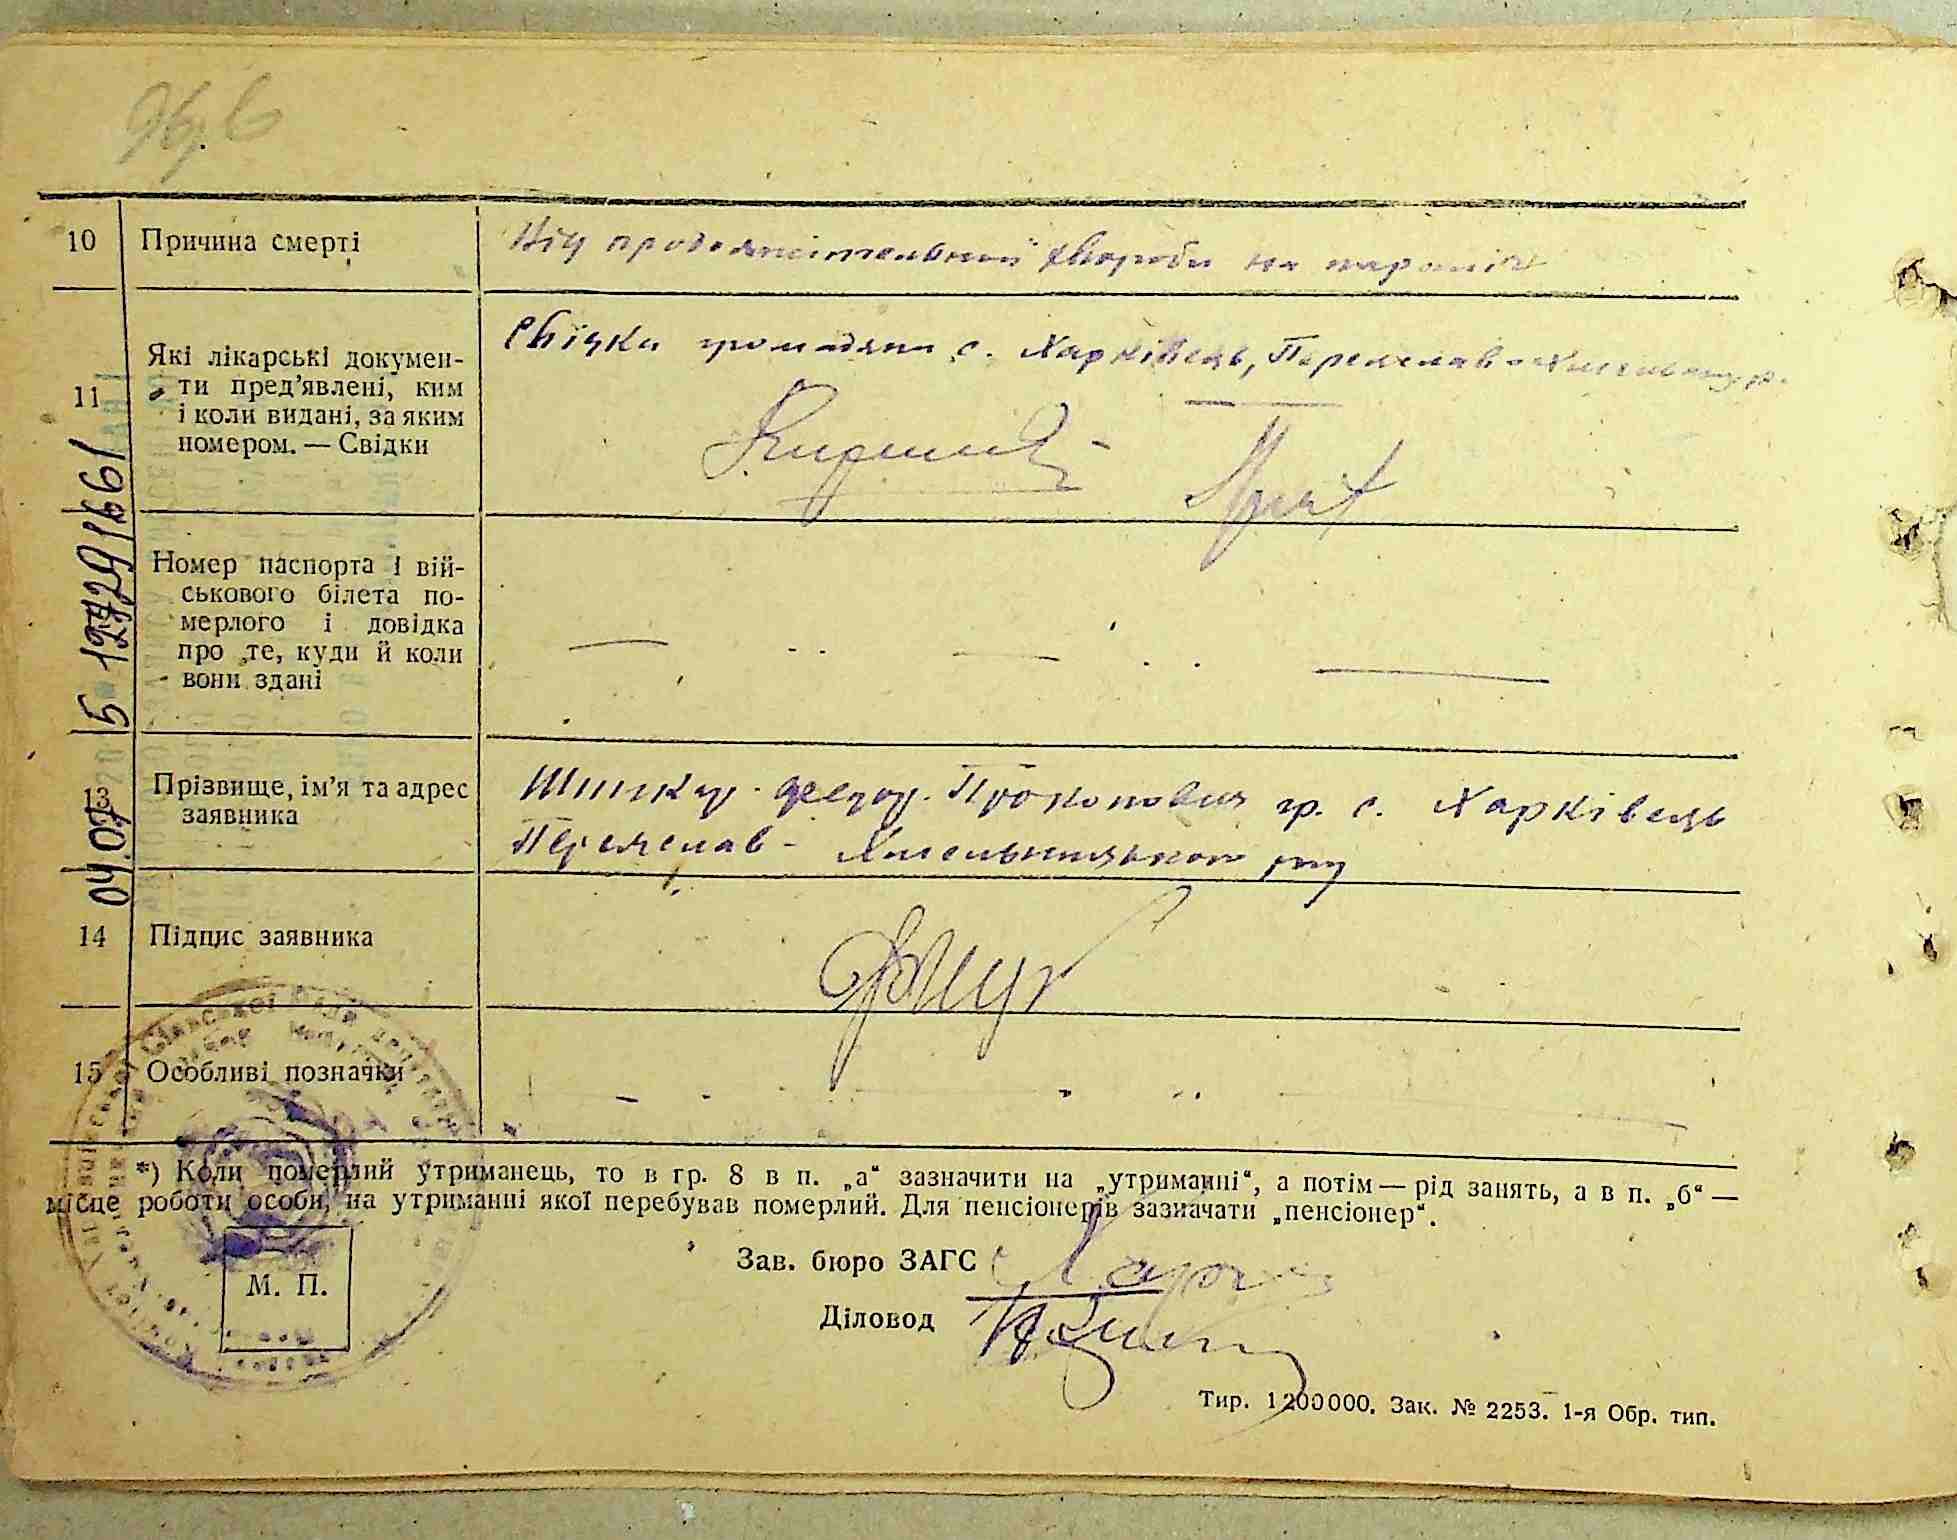 10 Причина смерті
Від продолжительний хвороби на параліч
11 Які лікарські докумен-
ти пред’явлені, ким
і коли видані, за яким
номером. — Свідки
Свідки громадяни с. Харківець, Переяслав-Хмельниц. р.
Номер паспорта і вій-
ськового білета по-
мерлого і довідка
про те, куди й коли
вони здані
13 Прізвище, ім’я та адрес
заявника
Федор Прокопович гр. с. Харківець
Переяслав - Хмельницького р-ну
14 Підпис заявника
15 Особливі позначки
*) Коли померлий утриманець, то в гр. 8 в п. „а“ зазначити на „утриманні“, а потім — рід занять, а в п. „б“ —
місце роботи особи, на утриманні якої перебував померлий. Для пенсіонерів зазначати „пенсіонер“.
Зав. бюро ЗАГС
М. П.
Діловод
Тир. 1200000. Зак. № 2253. 1-я Обр. тип.
04.07